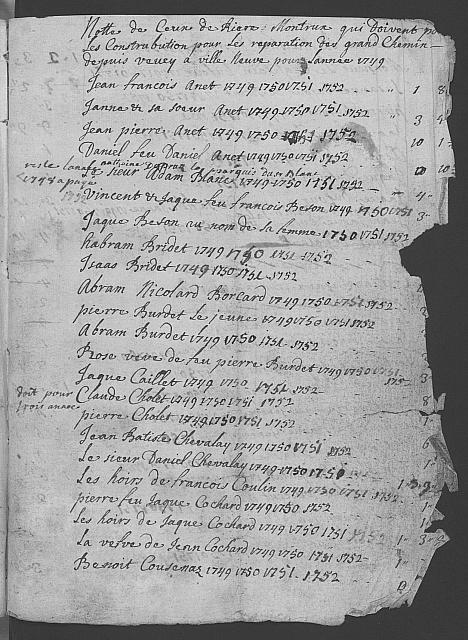 Notte de Ceux de Riere Montrux qui Doivent
Les Constrabution pour Les reparation des grand Chemin
depuis vevey a ville Neuve pour Lannée 1749
Jean francois Anet 1749 1750 1751 1752 " 1 8
Janne & sa soeur Anet 1749 1750 1751 1752 " 3
Jean pierre Anet 1749 1750 1751 1752 10 1
Daniel feu Daniel Anet 1749 1750 1751 1752
Le sieur Adam Blanc 1749 1750 1751 1752
Vincent & Jaque feu francois Beson 1749 1750 1751 4
Jaque Beson au nom de sa femme 1750 1751 1752 3
habram Bridet 1749 1750 1751 1752
Isaac Bridet 1749 1750 1751 1752
Abram Nicolard Borcard 1749 1750 1751 1752
pierre Burdet Le jeune 1749 1750 1751 1752
Abram Burdet 1749 1750 1751 1752
Rose veve de feu pierre Burdet 1749 1750 1751
1752
Jaque Caillet 1749 1750 1751 1752 3
doit pour
trois année
Claude Cholet 1749 1750 1751 1752 8
pierre Cholet 1749 1750 1751 1
Jean Batiste Chevalay 1749 1750 1751 1752 6
Le sieur Daniel Chevalay 1749 1750 1
Les hoirs de francois Coulin 1749 1750 1751 1752 1 3 9
pierre feu Jaque Cochard 1749 1750 1752 1
Les hoirs de Jaque Cochard 1749 1750 1751 1752 1
La vefve de Jean Cochard 1749 1750 1751 1752 1 3
Benoit Cousenaz 1749 1750 1751 1752